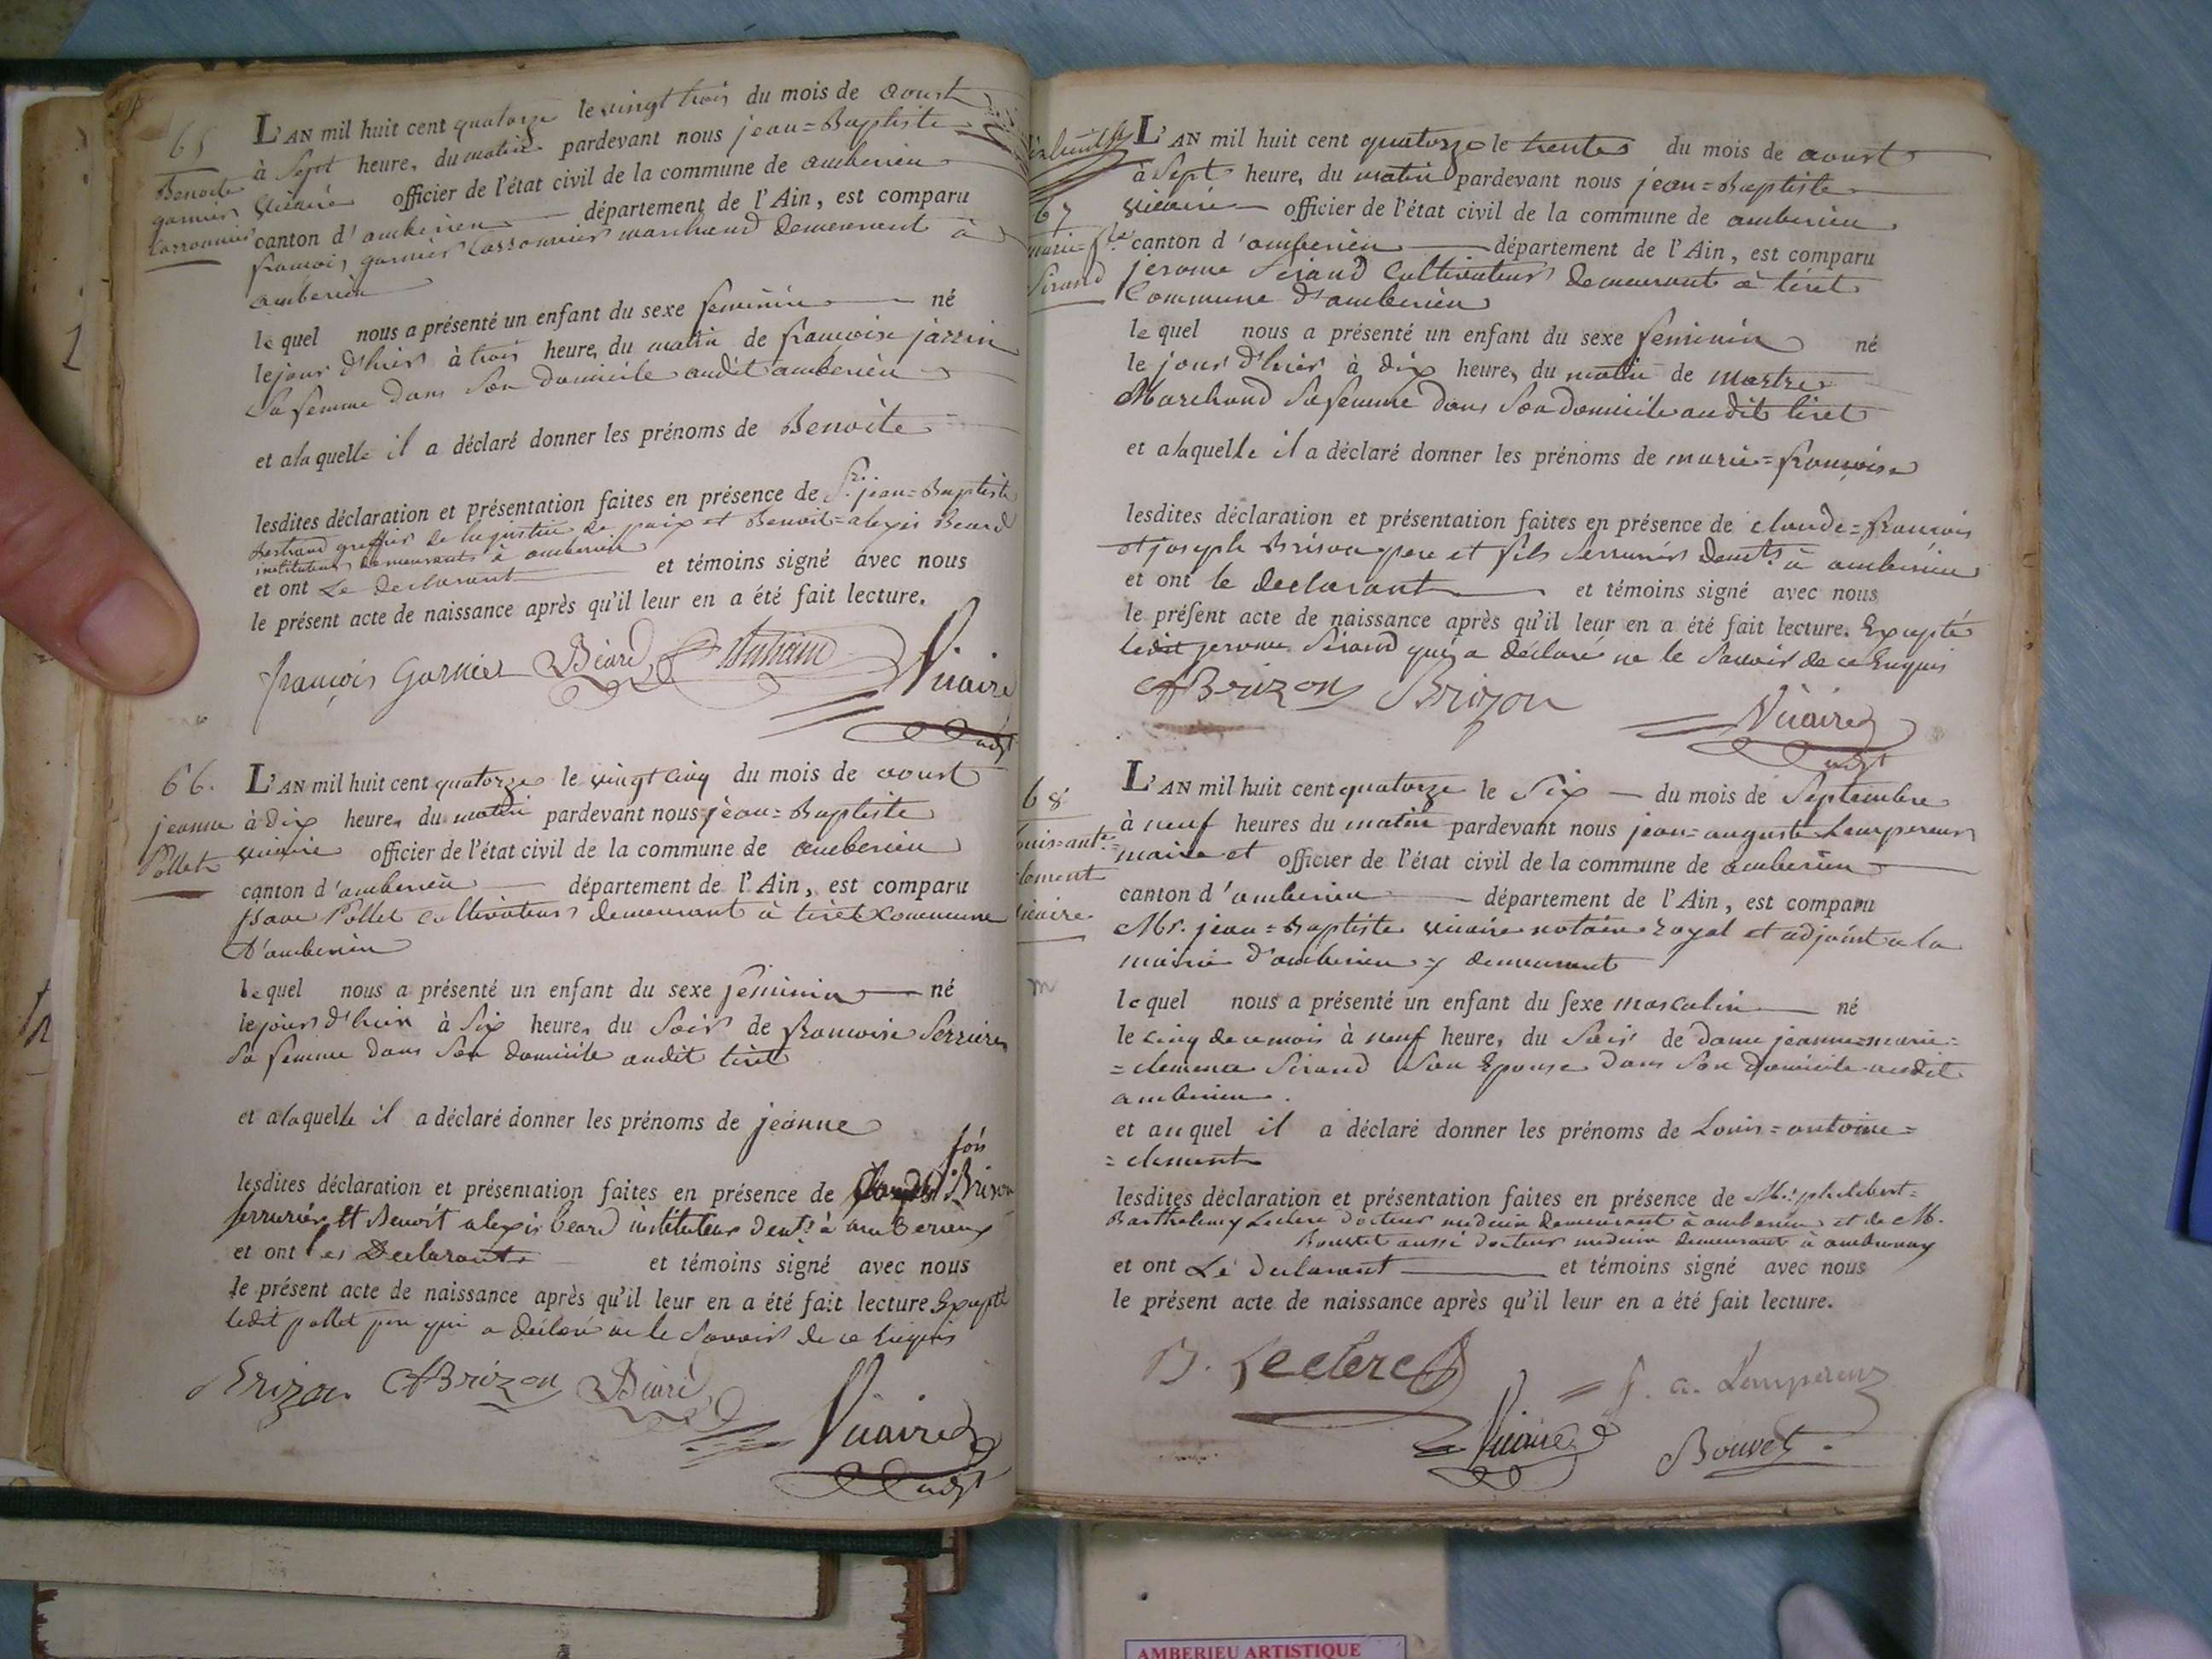 65
Benoite
garnier
L'AN mil huit cent quatorze le vingt trois du mois de aoust
à Sept heure, du matin pardevant nous jean=Baptiste
Vicaire officier de l'état civil de la commune de amberieu
canton d'amberieu département de l'Ain, est comparu
francois garnier marchand demeurant à
amberieu
le quel nous a présenté un enfant du sexe feminin né
le jour d'hier à trois heure, du matin de francoise jarrin
Sa femme dans Son domicile audit amberieu
et a la quelle il a déclaré donner les prénoms de Benoite
lesdites déclaration et présentation faites en présence de Sr. jean=Baptiste
greffier de la justice de paix et Benoit=alexis Beard
instituteur demeurants à amberieu
et ont Le declarant et témoins signé avec nous
le présent acte de naissance après qu'il leur en a été fait lecture.
françois Garnier Béard Vicaire
adjt
66.
jeanne
Pollet
L'AN mil huit cent quatorze le vingt cinq du mois de aoust
à dix heure, du matin pardevant nous jean=Baptiste
vicaire officier de l'état civil de la commune de amberieu
canton d'amberieu département de l'Ain, est comparu
Pollet cultivateur demeurant à tiret commune
d'amberieu
le quel nous a présenté un enfant du sexe feminin né
le jour d'hier à Six heure, du Soir de francoise Serriere
Sa femme dans Son domicile audit tiret
et a la quelle il a déclaré donner les prénoms de jeanne
fois
lesdites déclaration et présentation faites en présence de Brison
serrurier et Benoit alexis beard instituteur demts à amberieux
et ont les Declarants et témoins signé avec nous
le présent acte de naissance après qu'il leur en a été fait lecture Excepté
ledit pollet pere qui a déclaré ne le Savoir de ce Enquis
Brizon CfBrizon Béard
Vicaire
adjt
67
marie=fse
Sirand
L'AN mil huit cent quatorze le trente du mois de aoust
à Sept heure, du matin pardevant nous jean=Baptiste
vicaire officier de l'état civil de la commune de amberieu
canton d'amberieu département de l'Ain, est comparu
jerome Sirand Cultivateur demeurant à tiret
Commune d'amberieu
le quel nous a présenté un enfant du sexe feminin né
le jour d'hier à dix heure, du matin de marthe
Marchand Sa femme dans Son domicile audit tiret
et a laquelle il a déclaré donner les prénoms de marie=francoise
lesdites déclaration et présentation faites en présence de claude=francois
et joseph Brison pere et fils Serruriers demts. à amberieu
et ont le declarant et témoins signé avec nous
le présent acte de naissance après qu'il leur en a été fait lecture. Excepté
ledit jerome Sirand qui a déclaré ne le Savoir de ce Enquis
CfBrizon Brizon
Vicaire
adjt
68
louis=ante=
clement
vicaire
L'AN mil huit cent quatorze le Six du mois de Septembre
à neuf heures du matin pardevant nous jean=auguste Lempereur
maire et officier de l'état civil de la commune de amberieu
canton d'amberieu département de l'Ain, est comparu
Mr. jean=Baptiste vicaire notaire royal et adjoint a la
mairie d'amberieu y demeurant
le quel nous a présenté un enfant du sexe masculin né
le cinq de ce mois à neuf heure, du Soir de dame jeanne=marie=
=clemence Sirand Son Epouse dans Son domicile audit
amberieu.
et auquel il a déclaré donner les prénoms de Louis=antoine=
=clement
lesdites déclaration et présentation faites en présence de Mr. philibert=
Barthelemy Leclerc docteur medecin demeurant à amberieu et de M.
Bouvet aussi docteur medecin demeurant à ambronay
et ont Le declarant et témoins signé avec nous
le présent acte de naissance après qu'il leur en a été fait lecture.
B. Leclerc J. a. Lempereur
Vicaire Bouvet
AMBERIEU ARTISTIQUE